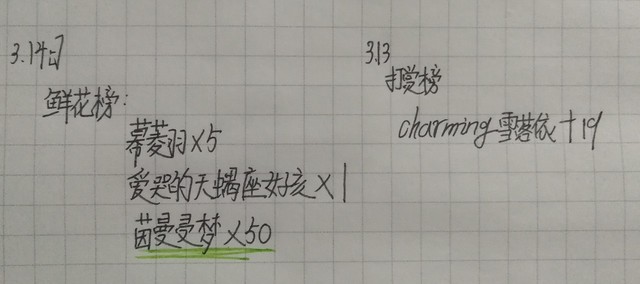 3.14日
鲜花榜:
幕菱羽×5
爱哭的天蝎座好亥×1
茵曼曼梦×50
3.13
打赏榜
charming雪落依+19